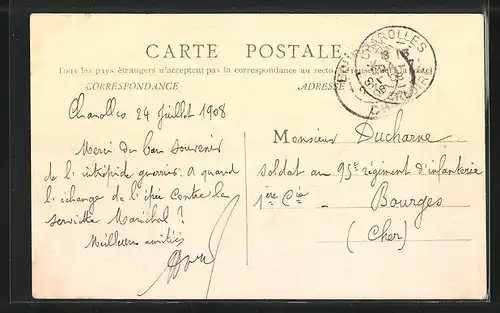 CARTE POSTALE
Tous les pays étrangers n'acceptent pas la correspondance au recto
CORRESPONDANCE
ADRESSE
CHAROLLES
Charolles 24 Juillet 1908
Merci du bon souvenir
de l'intrépide guerrier. A quand
l'échange de l'épée contre la
serviette Maréchal ?
Meilleures amitiés
Monsieur Ducharne
soldat au 95e régiment d'infanterie
1ère Cie
Bourges
(Cher)